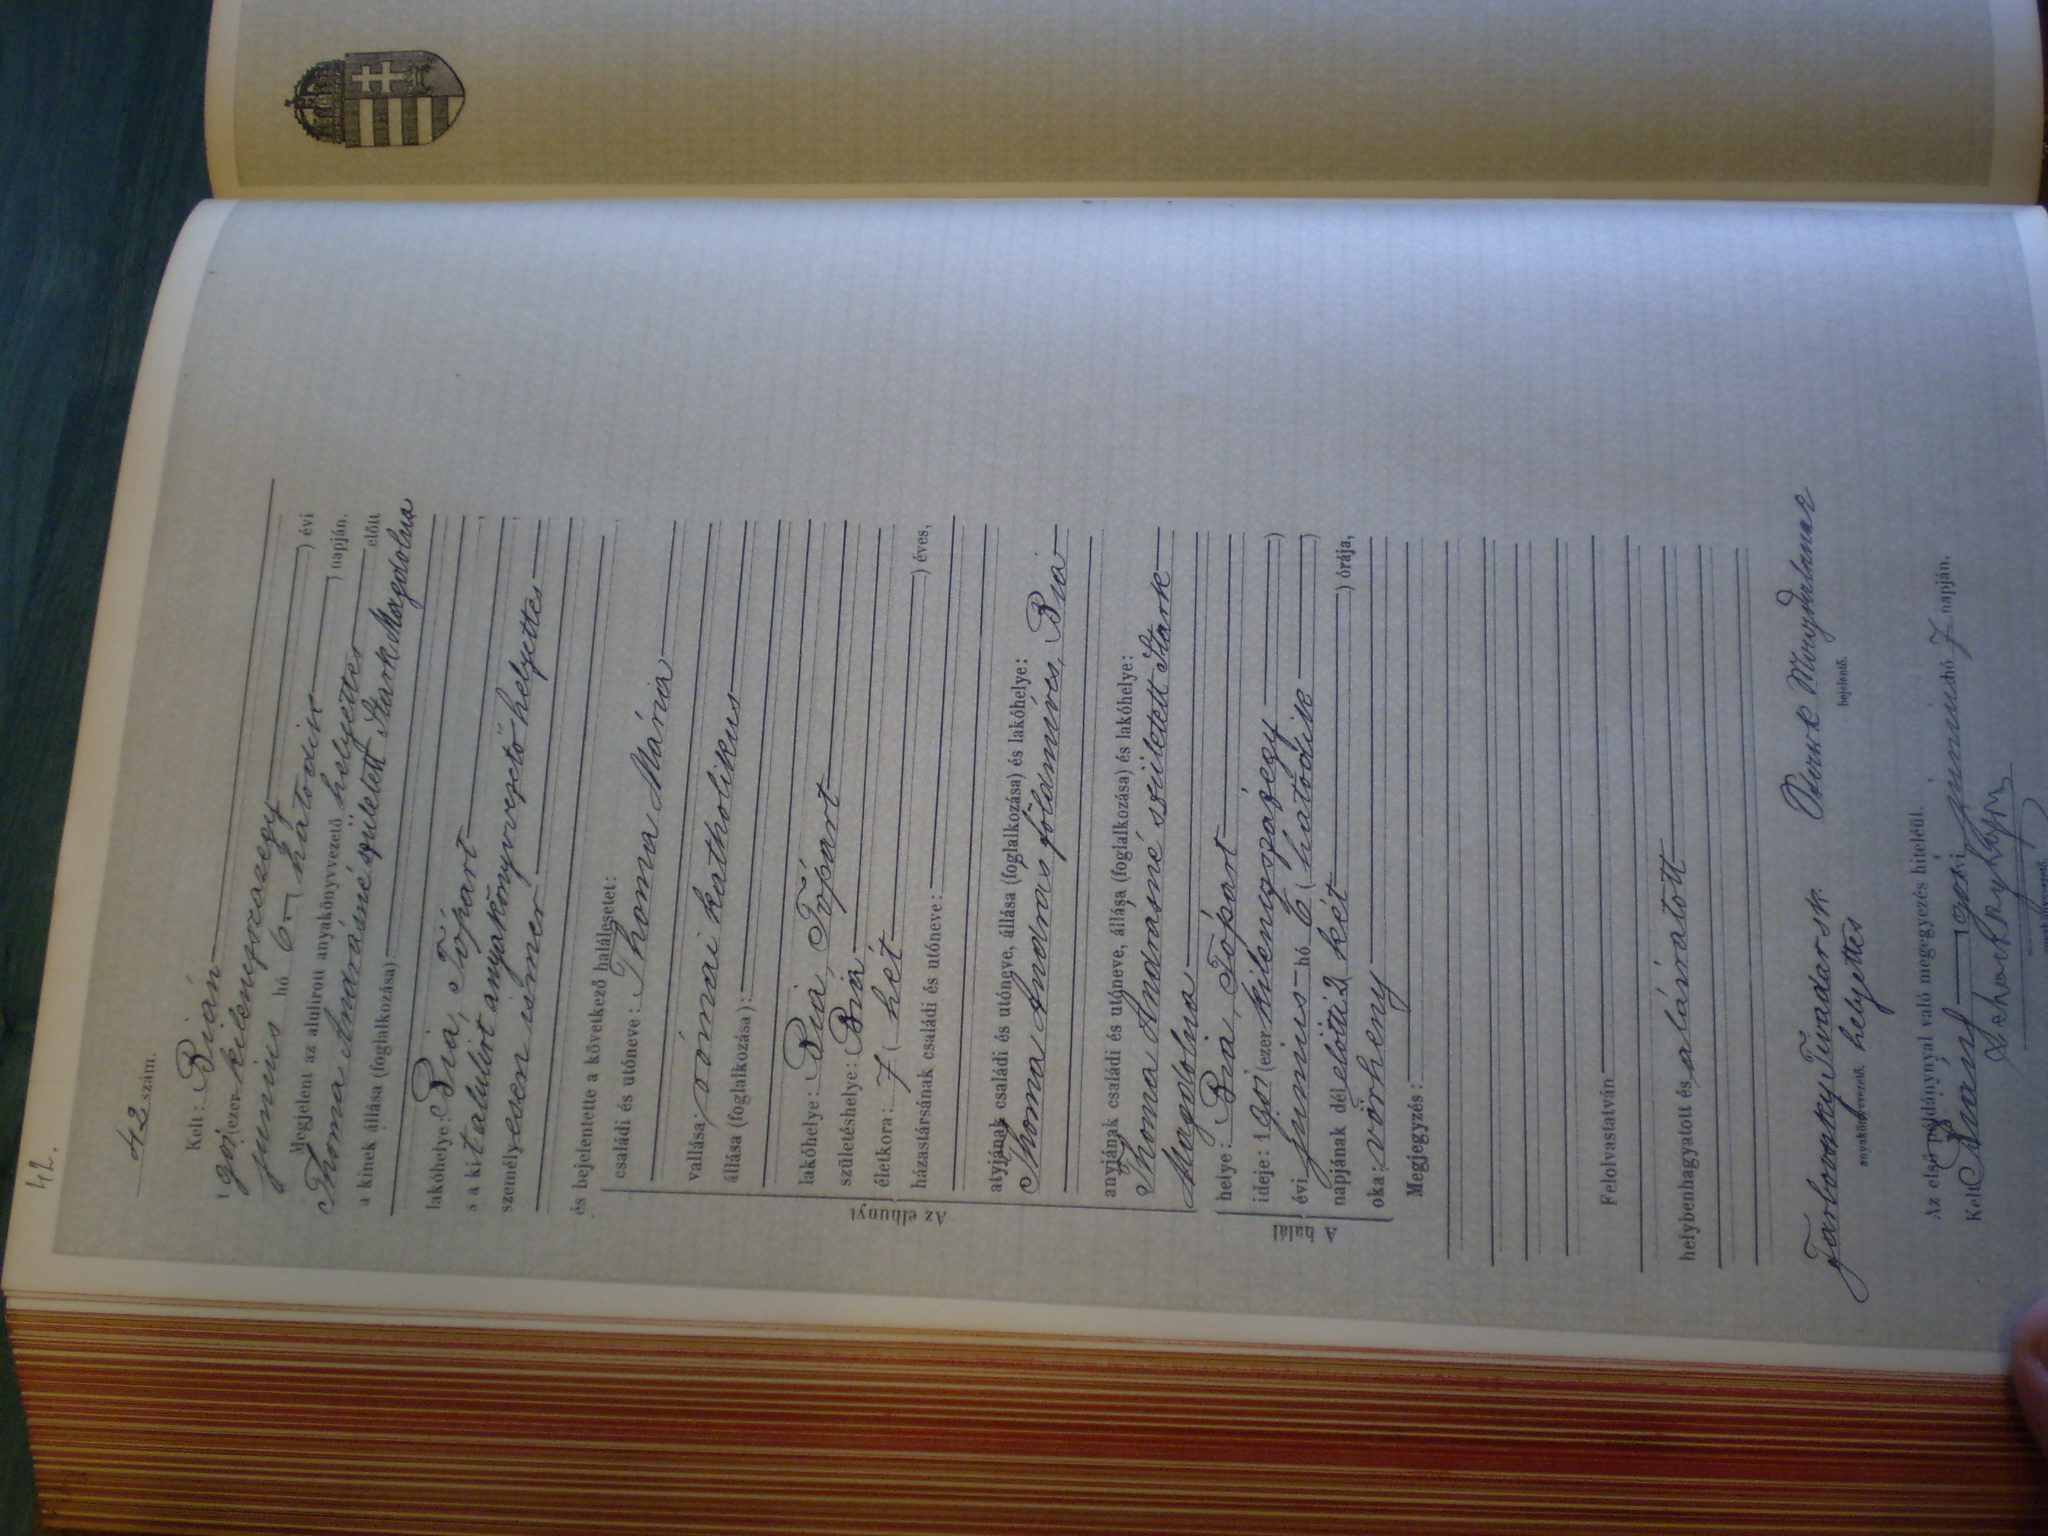 42.
42 szám.
Kelt: Bián
1901 (ezer kilencszázegy) évi
junius hó 6 (hatodik) napján.
Megjelent az alulirott anyakönyvvezető helyettes előtt
Thoma Andrásné született Stark Magdolna
a kinek állása (foglalkozása)
lakóhelye: Bia, Tópart
s a kit alulirott anyakönyvvezető helyettes
személyesen ismer
és bejelentette a következő halálesetet:
Az elhunyt
családi és utóneve: Thoma Mária
vallása: római katholikus
állása (foglalkozása):
lakóhelye: Bia, Tópart
születéshelye: Bia
életkora: 7 (hét) éves,
házastársának családi és utóneve:
atyjának családi és utóneve, állása (foglalkozása) és lakóhelye:
Thoma András földmíves, Bia
anyjának családi és utóneve, állása (foglalkozása) és lakóhelye:
Thoma Andrásné született Stark
Magdolna
A halál
helye: Bia, Tópart
ideje: 1901 (ezer kilencszázegy)
évi junius hó 6 (hatodik)
napjának dél előtti 2 (két) órája,
oka: vörheny
Megjegyzés:
Felolvastatván
helybenhagyatott és aláiratott
Tarlovszky Tivadar sk. Stark Magdalena
anyakönyvvezető, helyettes bejelentő.
Az első példánnyal való megegyezés hiteléül.
Kelt Bián 1901 évi junius hó 7 napján.